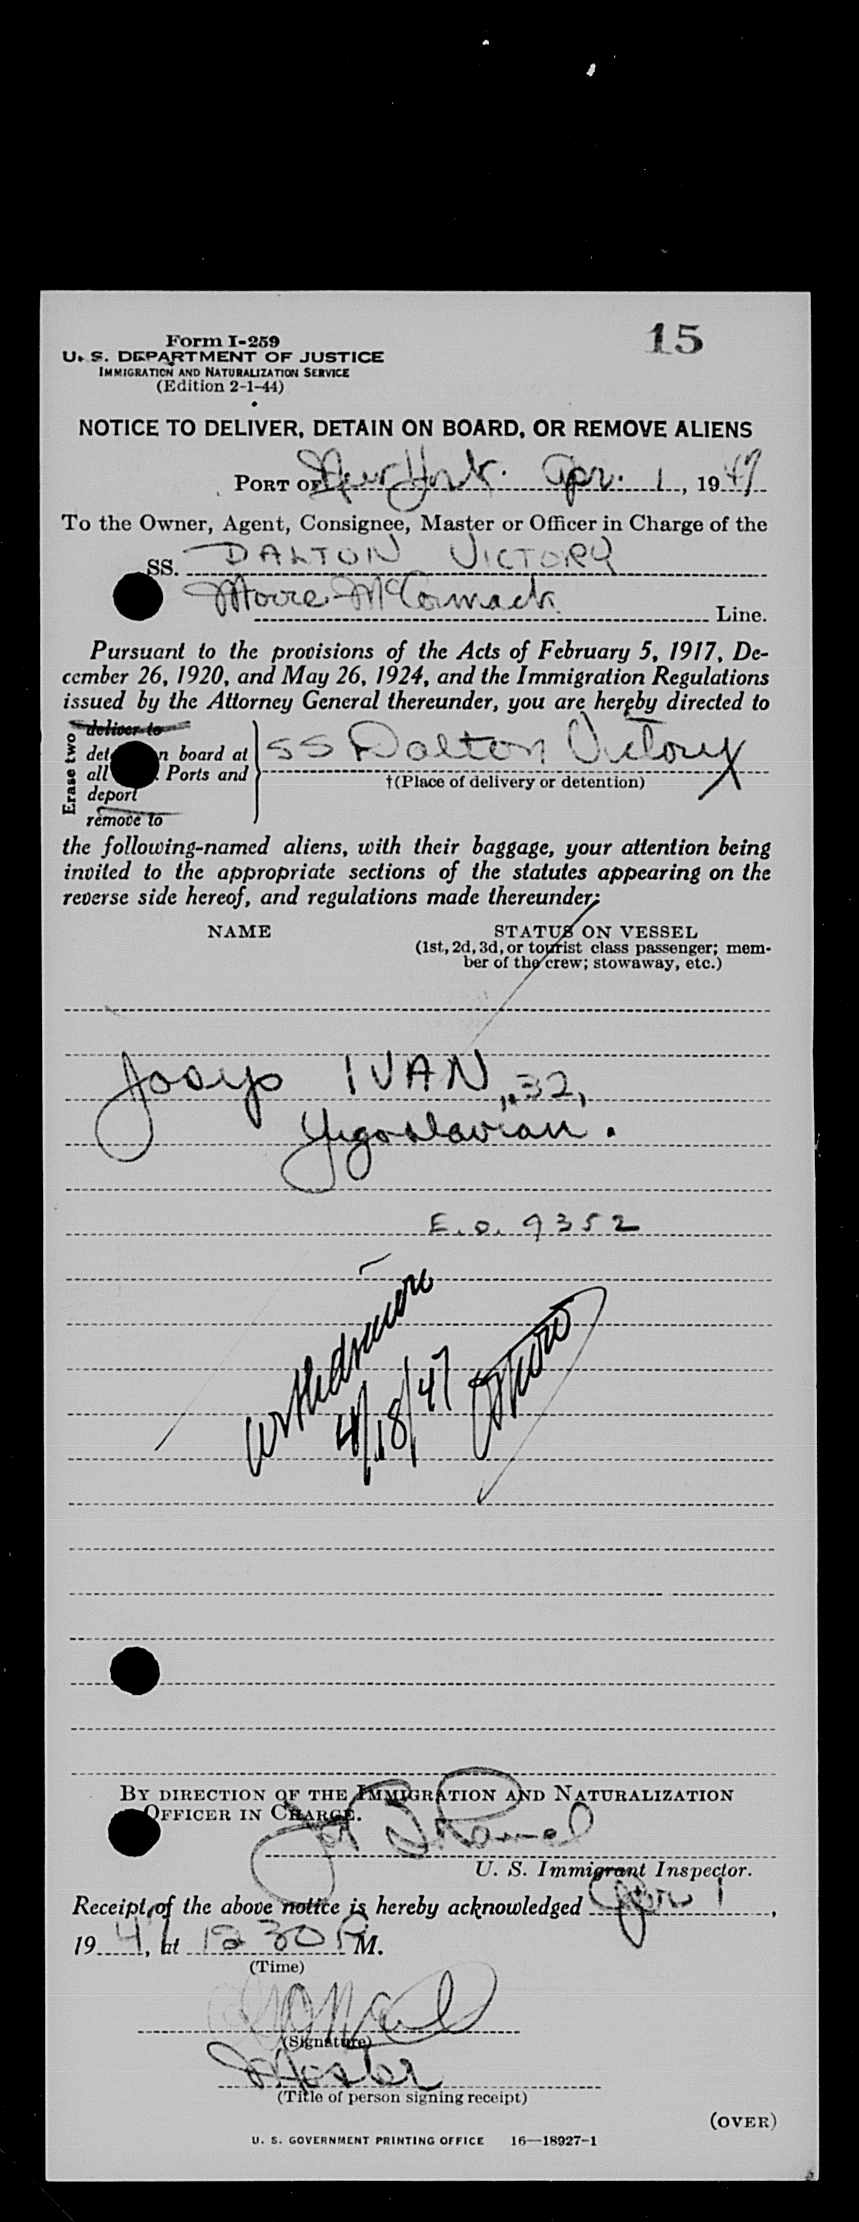 15
Form I-259
U. S. DEPARTMENT OF JUSTICE
IMMIGRATION AND NATURALIZATION SERVICE
(Edition 2-1-44)
NOTICE TO DELIVER, DETAIN ON BOARD, OR REMOVE ALIENS
PORT OF New York. Apr. 1, 1947
To the Owner, Agent, Consignee, Master or Officer in Charge of the
SS. DALTON VICTORY
Moore-McCormack Line.
Pursuant to the provisions of the Acts of February 5, 1917, De-
cember 26, 1920, and May 26, 1924, and the Immigration Regulations
issued by the Attorney General thereunder, you are hereby directed to
Erase two
deliver to
det n board at
all . Ports and
deport
remove to
SS Dalton Victory
†(Place of delivery or detention)
the following-named aliens, with their baggage, your attention being
invited to the appropriate sections of the statutes appearing on the
reverse side hereof, and regulations made thereunder:
NAME STATUS ON VESSEL
(1st, 2d, 3d, or tourist class passenger; mem-
ber of the crew; stowaway, etc.)
IVAN, 32,
Yugoslavian.
E.O. 9352
withdrawn
4/18/47
BY DIRECTION OF THE IMMIGRATION AND NATURALIZATION
OFFICER IN CHARGE.
U. S. Immigrant Inspector.
Receipt of the above notice is hereby acknowledged Apr 1,
1947, at 12 30 P M.
(Time)
(Signature)
Master
(Title of person signing receipt)
(OVER)
U. S. GOVERNMENT PRINTING OFFICE 16—18927-1